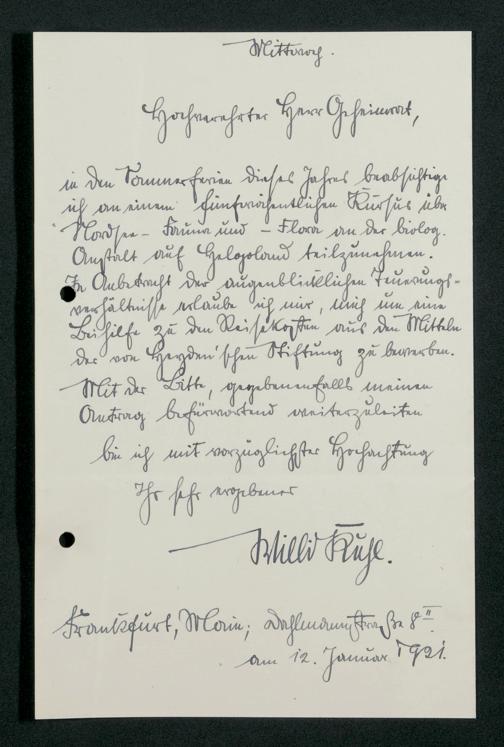 Mittwoch.
Hochverehrter Herr Geheimrat,
in den Sommerferien dieses Jahres beabsichtige
ich an einem fünfwöchentlichen Kursus über
Nordsee-Fauna und -Flora an der biolog.
Anstalt auf Helgoland teilzunehmen.
In Anbetracht der augenblicklichen Teuerungs-
verhältnisse erlaube ich mir, mich um eine
Beihilfe zu den Reisekosten aus den Mitteln
der von Heyden'schen Stiftung zu bewerben.
Mit der Bitte, gegebenenfalls meinen
Antrag befürwortend weiterzuleiten
bin ich mit vorzüglichster Hochachtung
Ihr sehr ergebener
Willi Kuhl.
Frankfurt, Main; Dahlmannstraße 8 II.
am 12. Januar 1921.